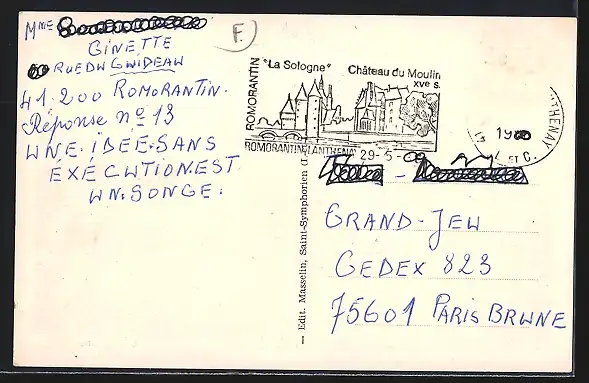 Mme
GINETTE
RUE DU GUIDEAU
41.200 ROMORANTIN.
Réponse no 13
UNE.IDÉE.SANS
EXÉCUTION.EST
UN.SONGE.
F.
ROMORANTIN
"La Sologne" Château du Moulin
XVe s.
ROMORANTIN-LANTHENAY
29-5-
THENAY
19
ET C.
— Edit. Masselin, Saint-Symphorien (I
GRAND-JEU
CEDEX 823
75601 PARIS BRUNE